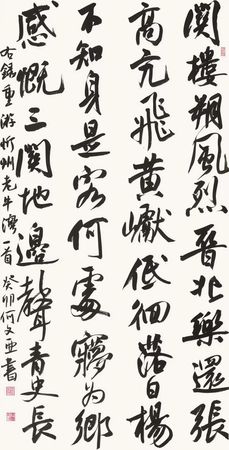 関樓朔風烈晉北樂還張
高亢飛黃巘低徊落日楊
不知身是客何處寢為鄉
感慨三關地邊聲青史長
右錄重游忻州老牛灣一首 癸卯何文亞書